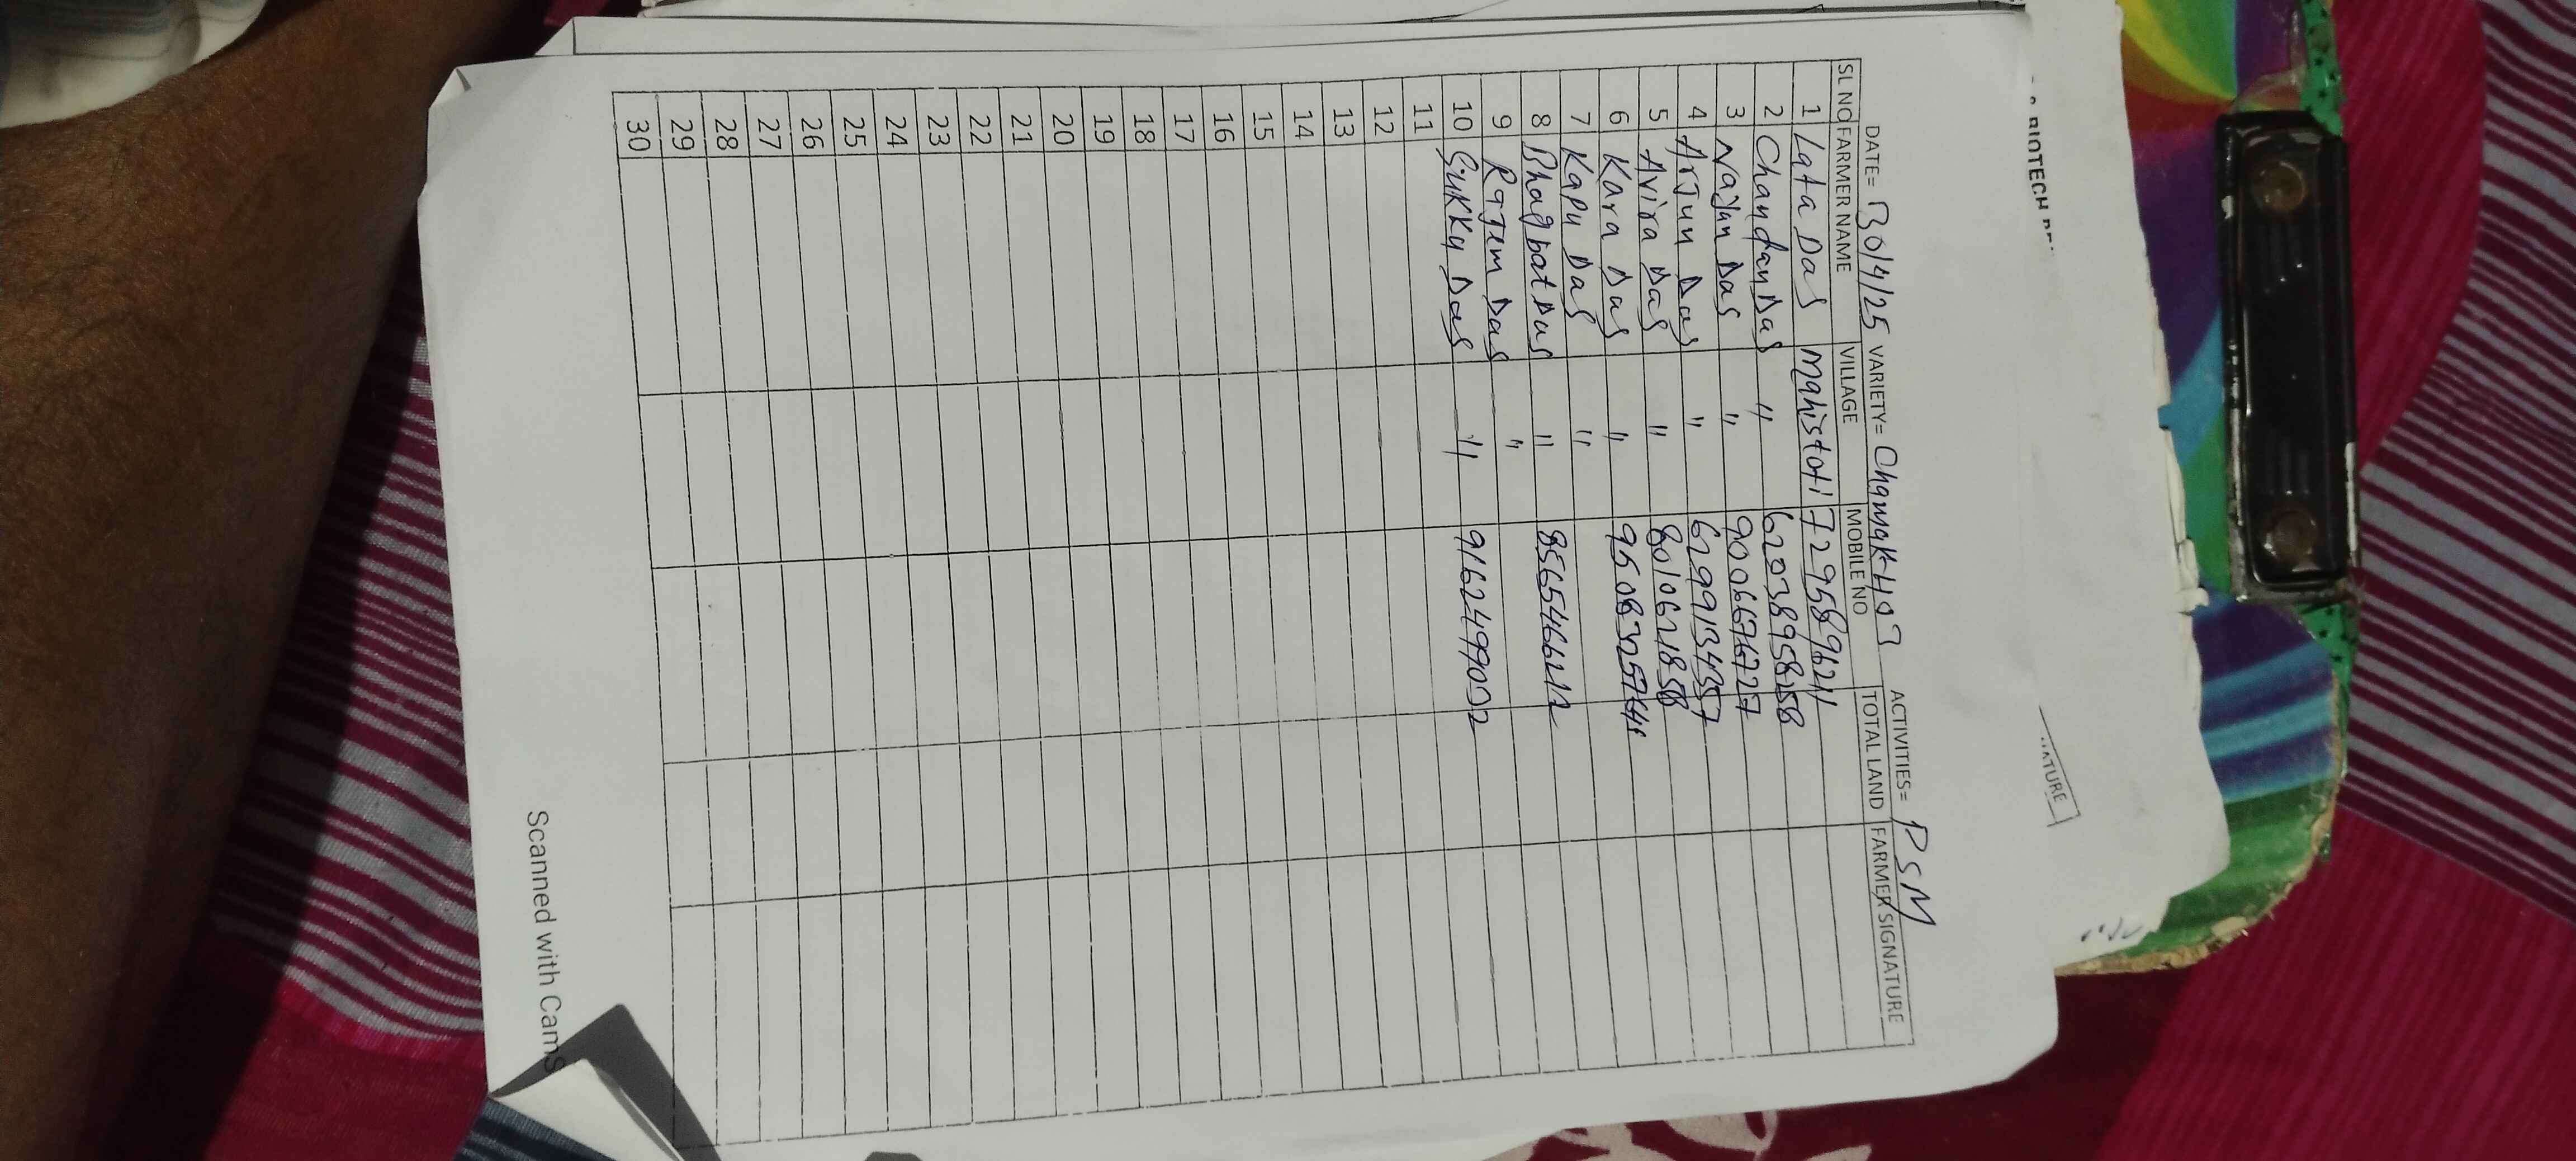 BIOTECH
ATURE
DATE= 30/4/25 VARIETY= Chamak 403 ACTIVITIES= PSM
SL NO FARMER NAME VILLAGE MOBILE NO TOTAL LAND FARMER SIGNATURE
1 Lata Das Mahistoti 7295889621
2 Chandan Das " 6203895858
3 Nayan Das " 9006676727
4 Arjun Das " 6299134357
5 Avira Das " 8010621858
6 Kara Das "
7 Kapu Das "
8 Bhagbat Das "
9 Rajem Das "
10 Sukku Das " 9162499002
11
12
13
14
15
16
17
18
19
20
21
22
23
24
25
26
27
28
29
30
Scanned with CamS